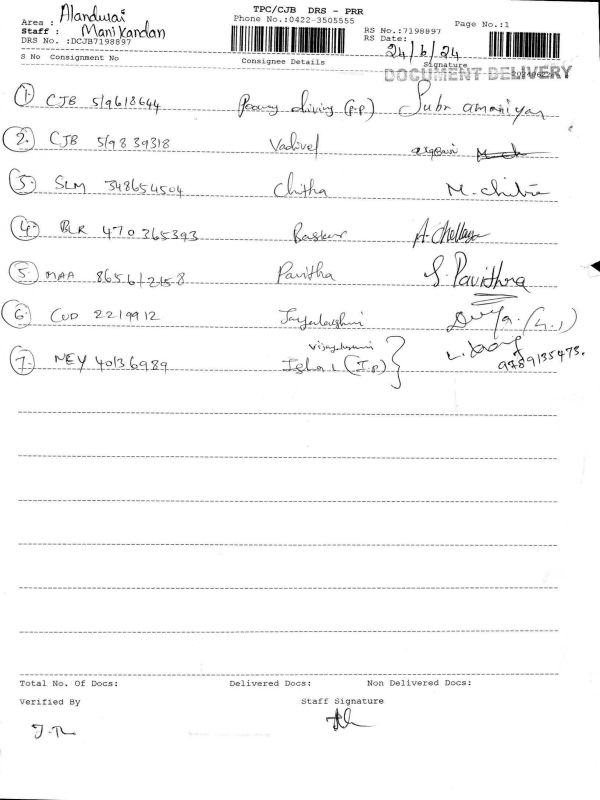 TPC/CJB DRS - PRR
Area : Alandurai
Phone No.:0422-3505555
Page No.:1
Staff : Manikandan
RS No.:7198897
DRS No. :DCJB7198897
RS Date: 24/6/24
S No Consignment No Consignee Details Signature
DOCUMENT DELIVERY
1. CJB 519618644 (P.P) Subramaniyan
2. CJB 519839318 Vadivel
3. SLM 348654504 Chitha M. Chitra
4. BLR 470365393 Baskar A. Chellaya
5. MAA 865672158 Pavitha S. Pavithra
6. CUD 2219912 Jayalaxhmi Divya.
7. NEY 40136989 (I.P)
9789135473.
Total No. Of Docs: Delivered Docs: Non Delivered Docs:
Verified By Staff Signature